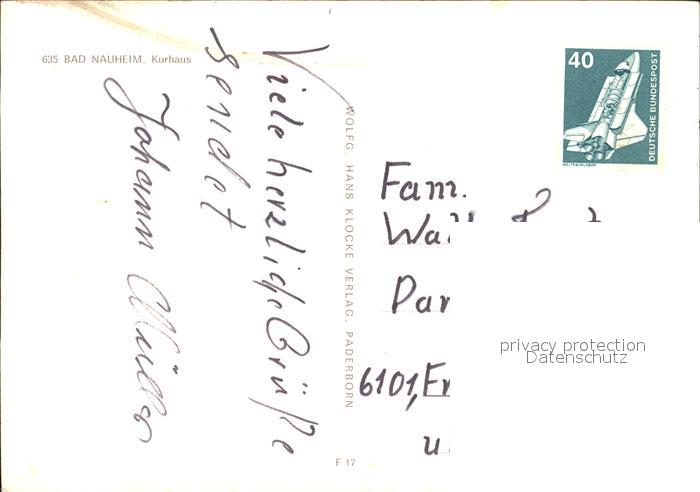 635 BAD NAUHEIM, Kurhaus
Viele herzliche Grüße
sendet
Johann Müller
WOLFG. HANS KLOCKE VERLAG, PADERBORN
F 17
40
DEUTSCHE BUNDESPOST
WELTRAUMLABOR
Fam.
Wal
Dar
6101, Fr
u
privacy protection
Datenschutz